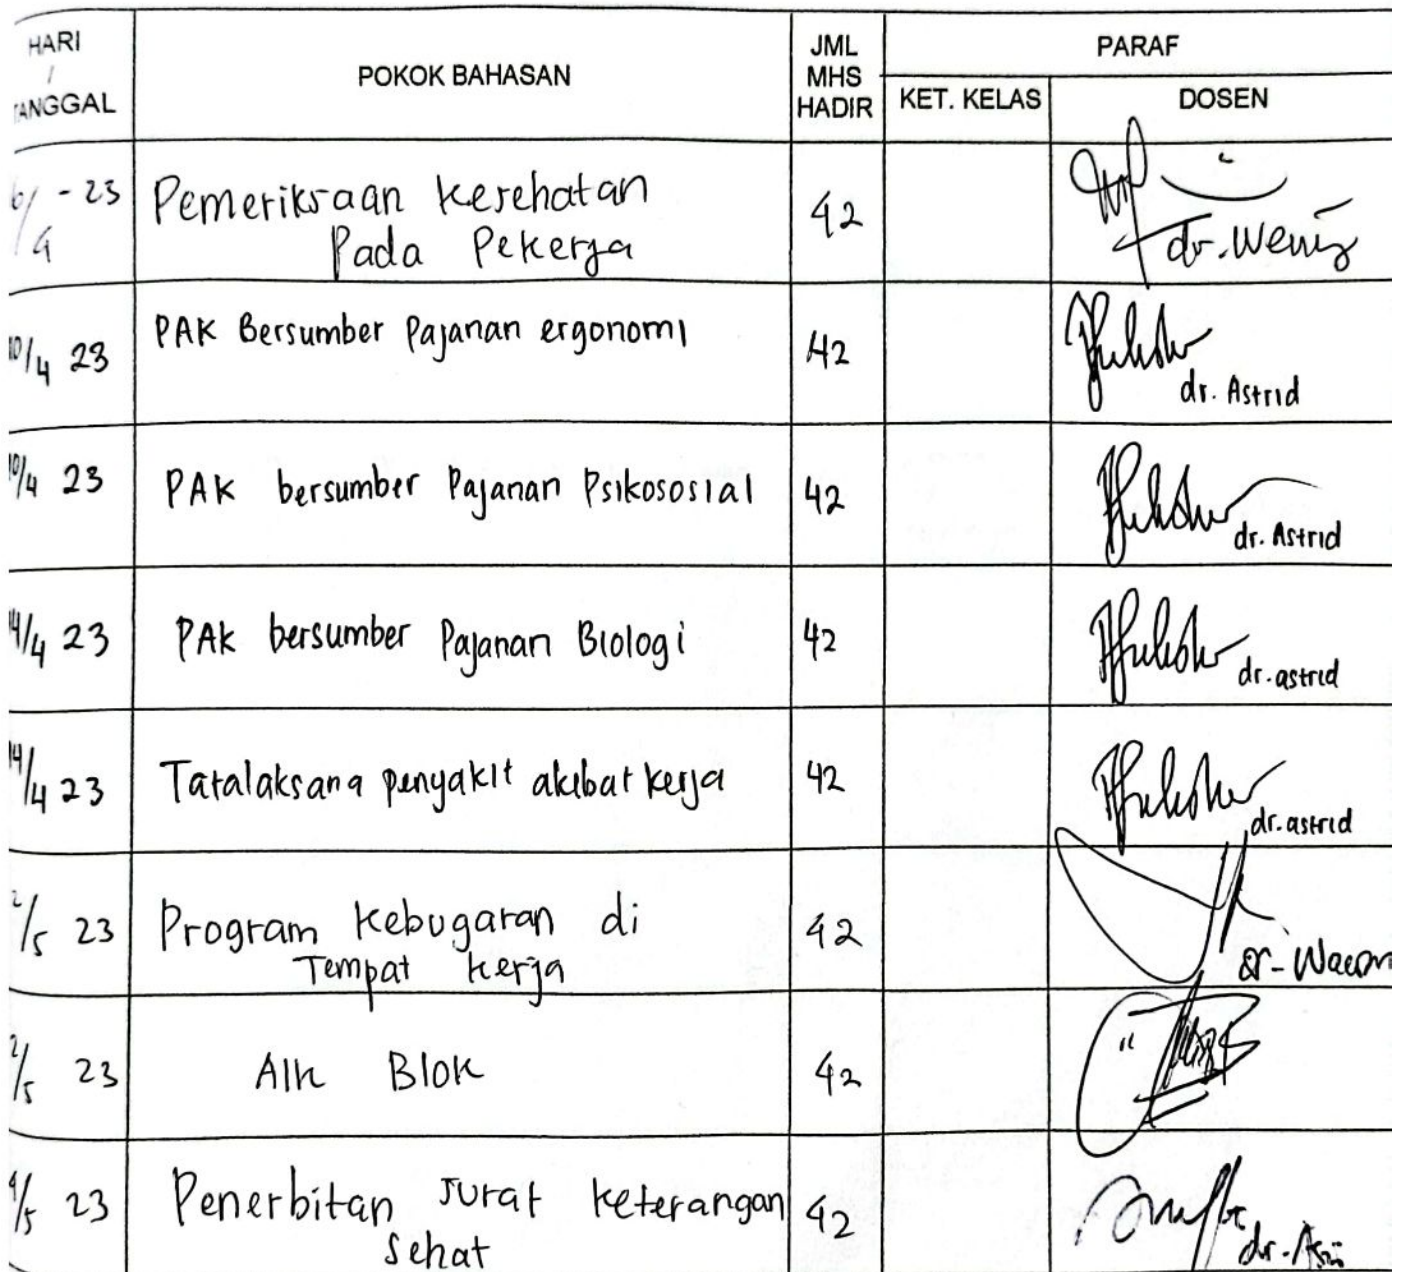 HARI
/
TANGGAL
POKOK BAHASAN
JML
MHS
HADIR
PARAF
KET. KELAS
DOSEN
6/4 - 23
Pemeriksaan Kesehatan
Pada Pekerja
42
dr. Weny
10/4 23
PAK Bersumber Pajanan ergonomi
42
dr. Astrid
10/4 23
PAK bersumber Pajanan Psikososial
42
dr. Astrid
14/4 23
PAK bersumber Pajanan Biologi
42
dr. astrid
14/4 23
Tatalaksana penyakit akibat kerja
42
dr. astrid
2/5 23
Program Kebugaran di
Tempat Kerja
42
2/5 23
Blok
42
/5 23
Penerbitan surat keterangan
sehat
42